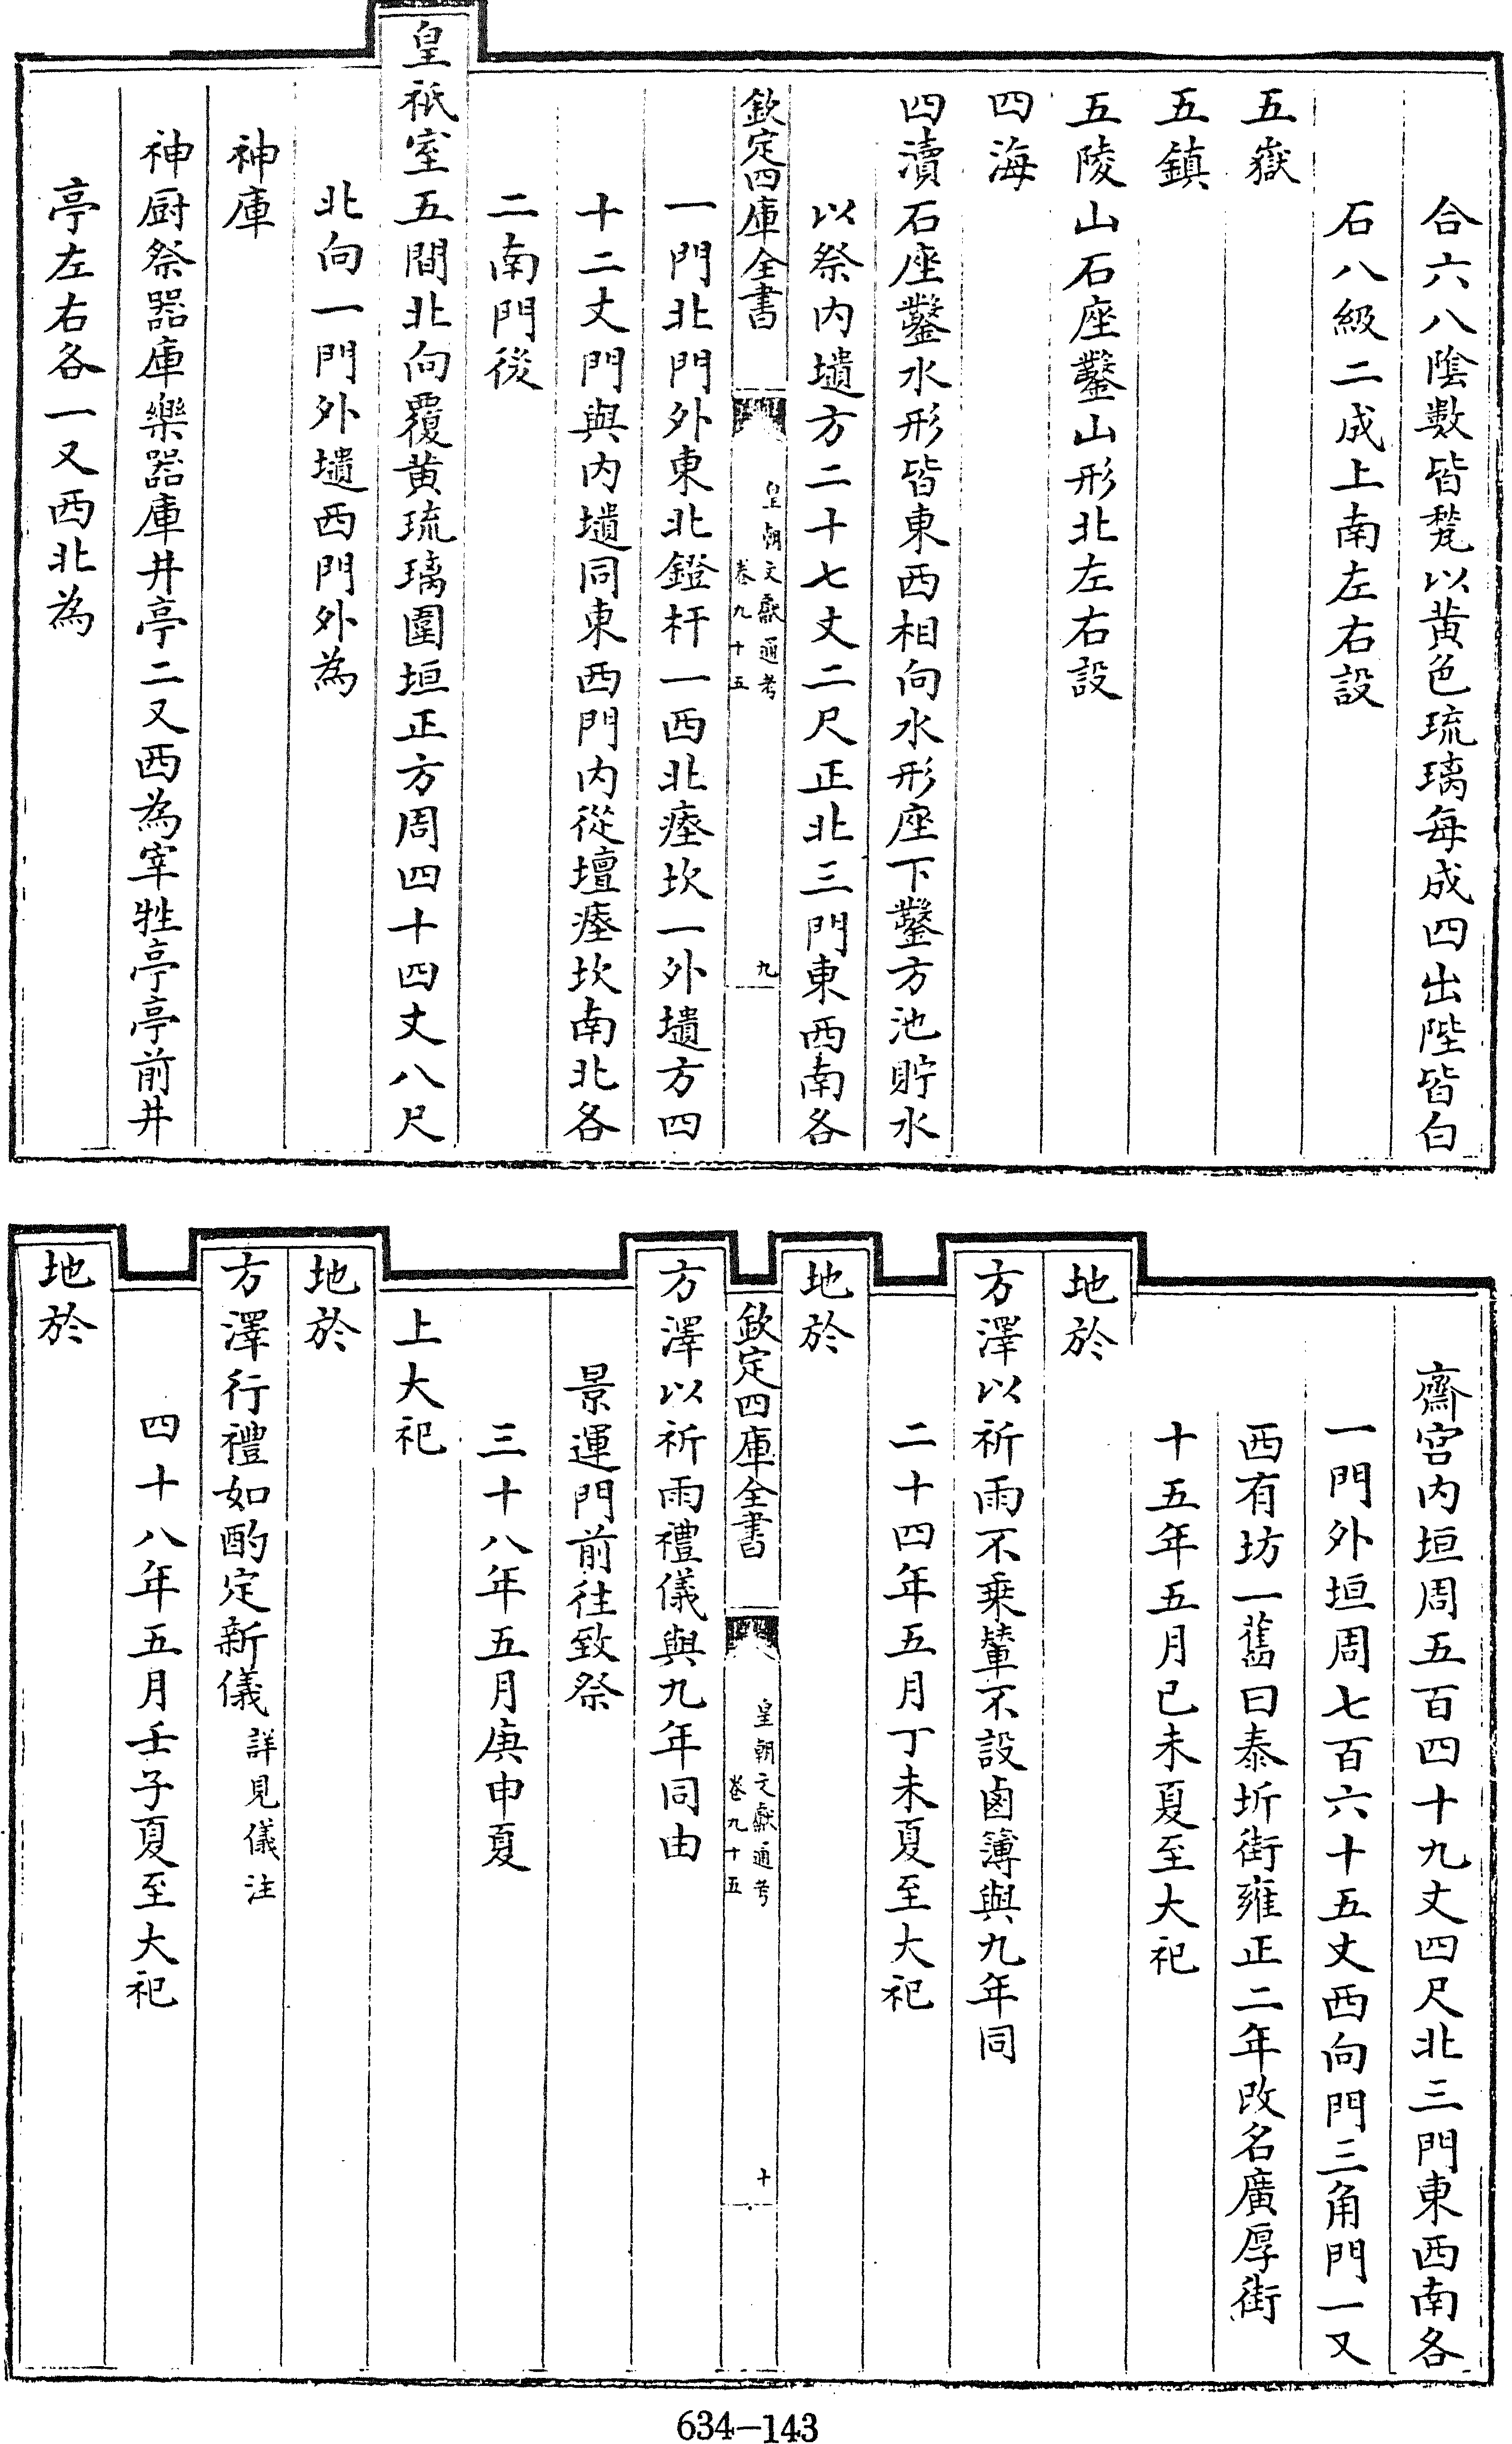 合六八陰數皆甃以黄色琉璃每成四出陛皆白
石八級二成上南左右設
五嶽
五鎮
五陵山石座鑿山形北左右設
四海
四瀆石座鑿水形皆東西相向水形座下鑿方池貯水
以祭内壝方二十七丈二尺正北三門東西南各
欽定四庫全書
皇朝文獻通考
卷九十五
九
一門北門外東北鐙杆一西北瘞坎一外壝方四
十二丈門與内壝同東西門内從壇瘞坎南北各
二南門後
皇祇室五間北向覆黄琉璃圍垣正方周四十四丈八尺
北向一門外壝西門外為
神庫
神厨祭器庫樂器庫井亭二又西為宰牲亭亭前井
亭左右各一又西北為
齋宫内垣周五百四十九丈四尺北三門東西南各
一門外垣周七百六十五丈西向門三角門一又
西有坊一舊曰泰圻街雍正二年改名廣厚街
十五年五月已未夏至大祀
地於
方澤以祈雨不乗輦不設鹵簿與九年同
二十四年五月丁未夏至大祀
地於
欽定四庫全書
皇朝文獻通考
卷九十五
十
方澤以祈雨禮儀與九年同由
景運門前往致祭
三十八年五月庚申夏
上大祀
地於
方澤行禮如酌定新儀詳見儀注
四十八年五月壬子夏至大祀
地於
634-143